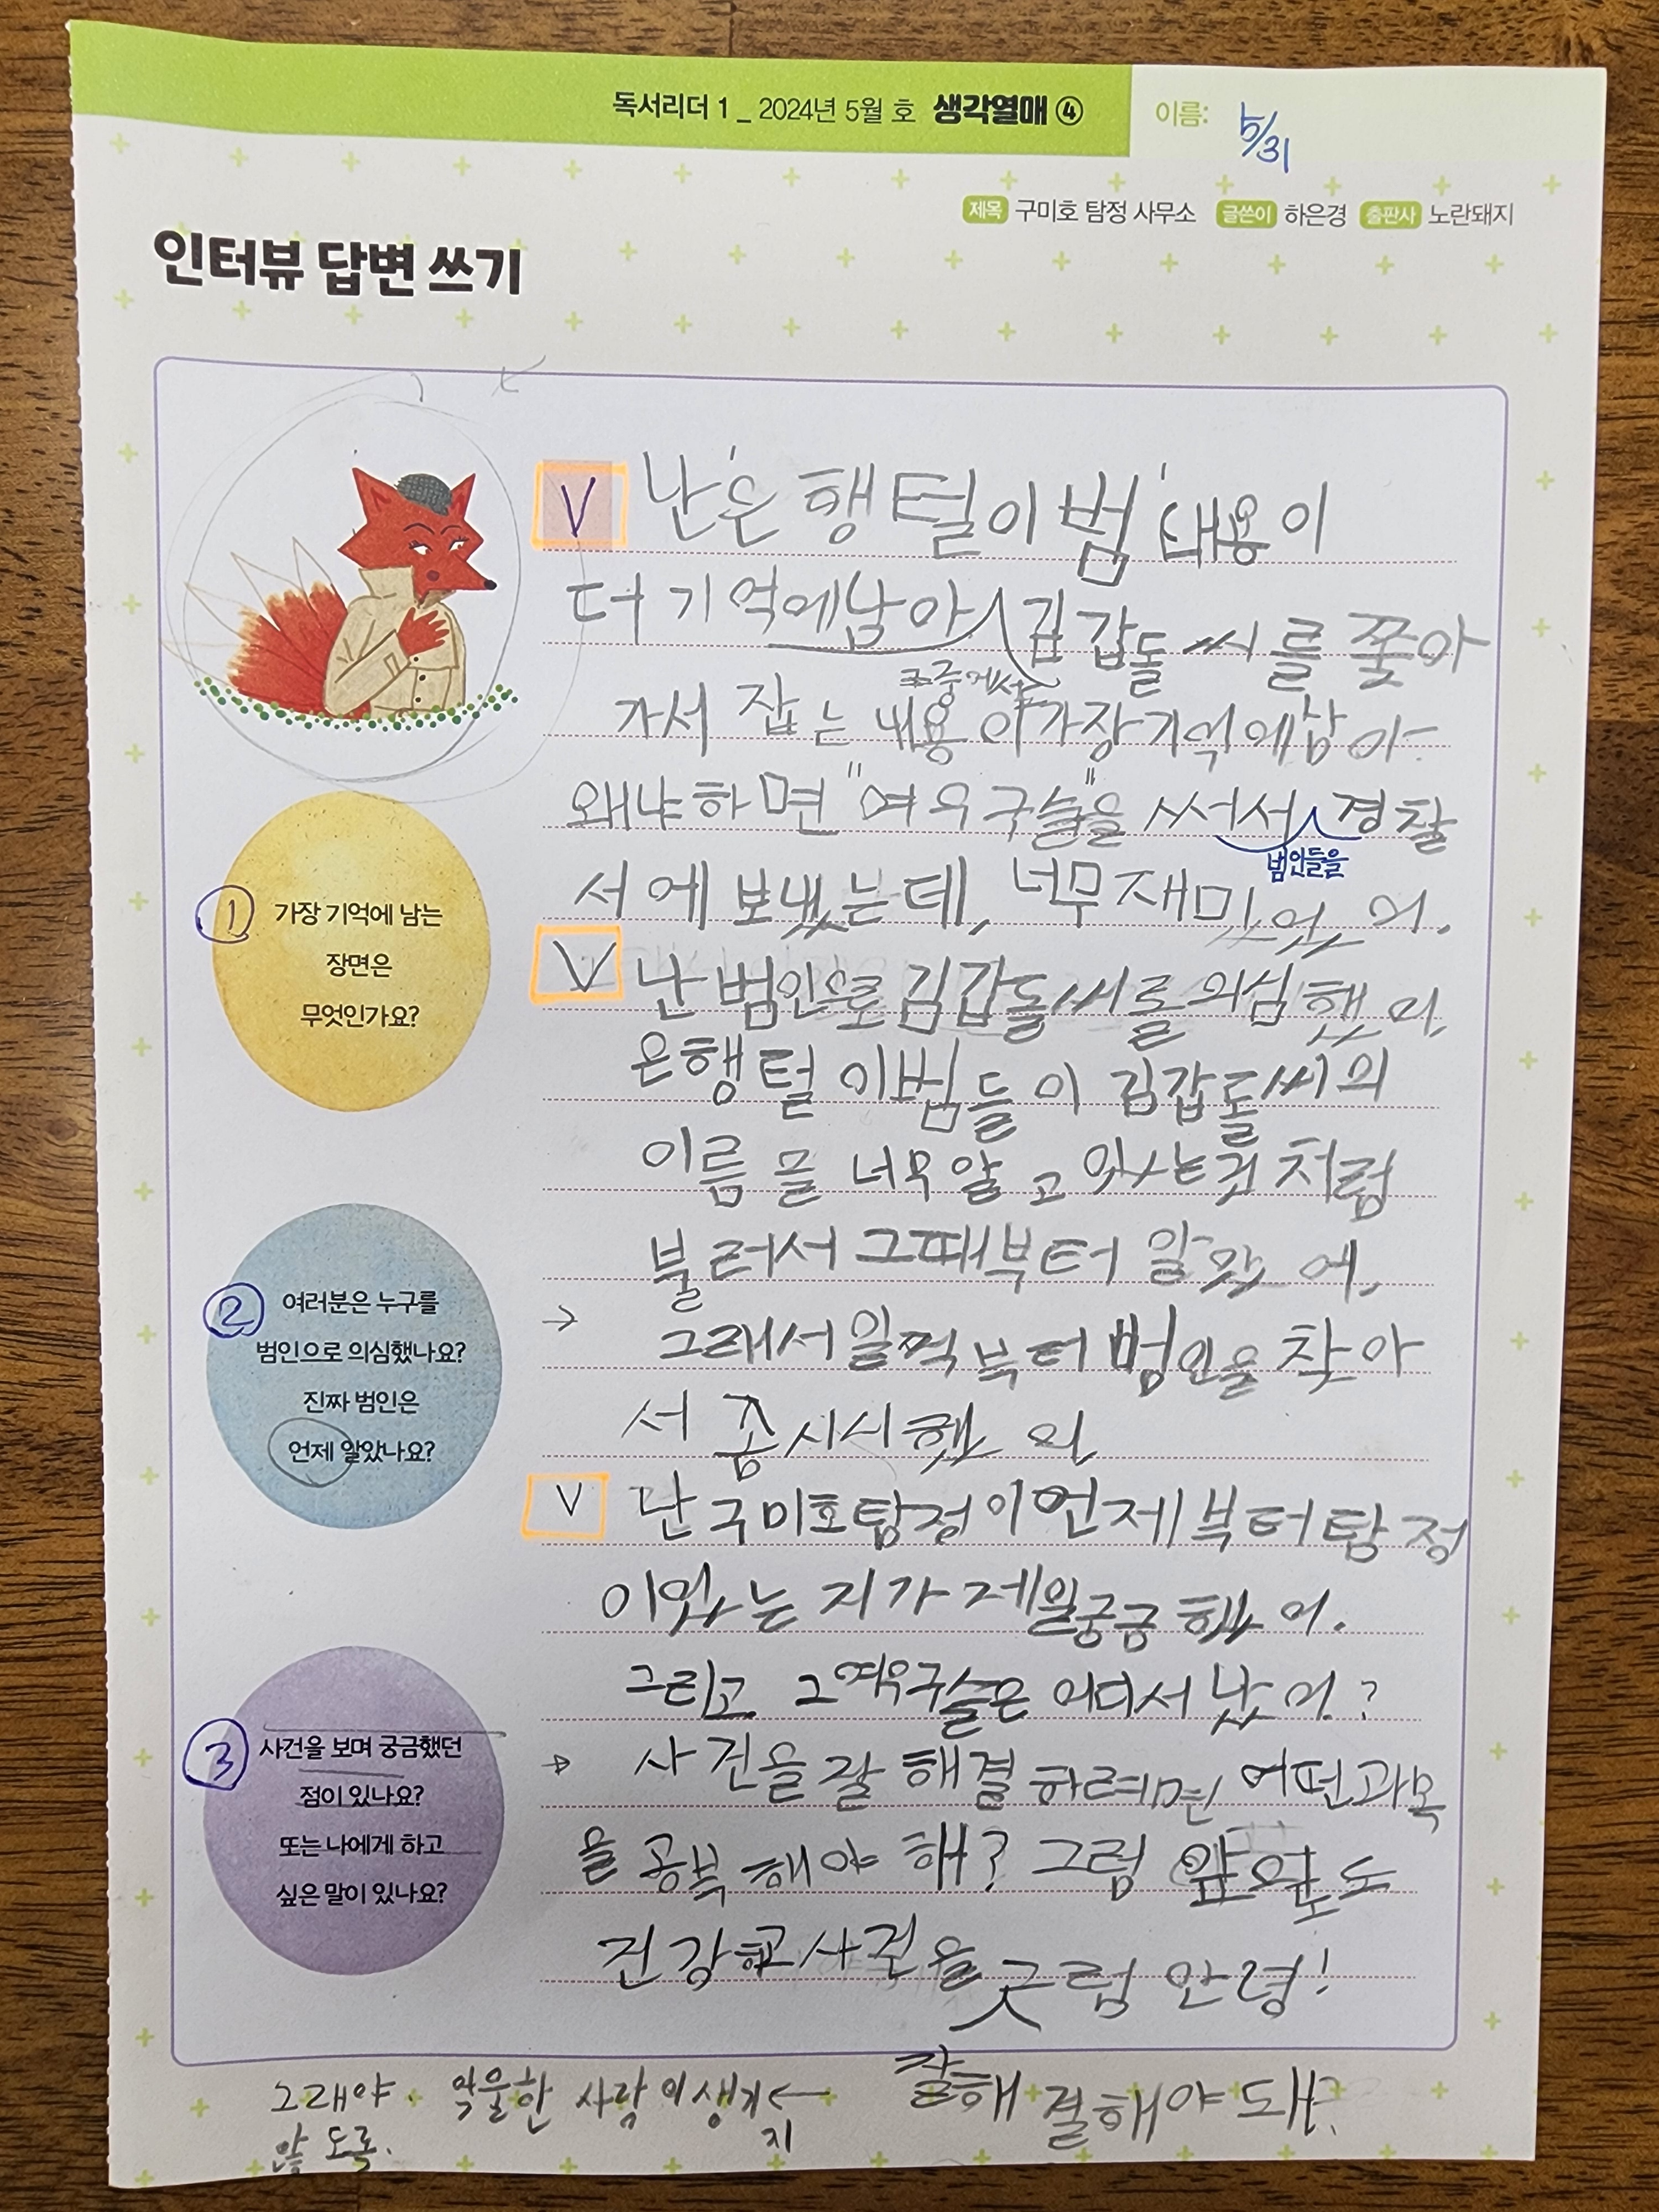 독서리더 1 _ 2024년 5월 호 생각열매 ④
이름: 5/31
제목 구미호 탐정 사무소 글쓴이 하은경 출판사 노란돼지
인터뷰 답변 쓰기
V 난 '은행털이범' 내용이
더 기억에남아 김갑돌 씨를 쫓아
그중에서
가서 잡는 내용이 가장 기억에남아
왜냐하면 "여우구슬"을 써서 경찰
범인들을
서에 보냈는데, 너무 재미있었어.
V 난 범인으로 김갑돌씨를 의심했어.
은행털이범들이 김갑돌씨의
이름을 너무 알고 있는것처럼
불러서 그때부터 알았어.
→ 그래서 일찍부터 범인을 찾아
서 좀 시시했어
V 난 구미호탐정이 언제부터 탐정
이었는지가 제일궁금했어.
그리고 그여우구슬은 어디서 났어?
→ 사건을 잘 해결하려면 어떤과목
을 공부해야 해? 그럼 앞으로도
건강하고 사건을 그럼 안녕!
잘해결해야 돼?
그래야. 억울한 사람이생기←
지
않도록.
① 가장 기억에 남는
장면은
무엇인가요?
② 여러분은 누구를
범인으로 의심했나요?
진짜 범인은
언제 알았나요?
③ 사건을 보며 궁금했던
점이 있나요?
또는 나에게 하고
싶은 말이 있나요?